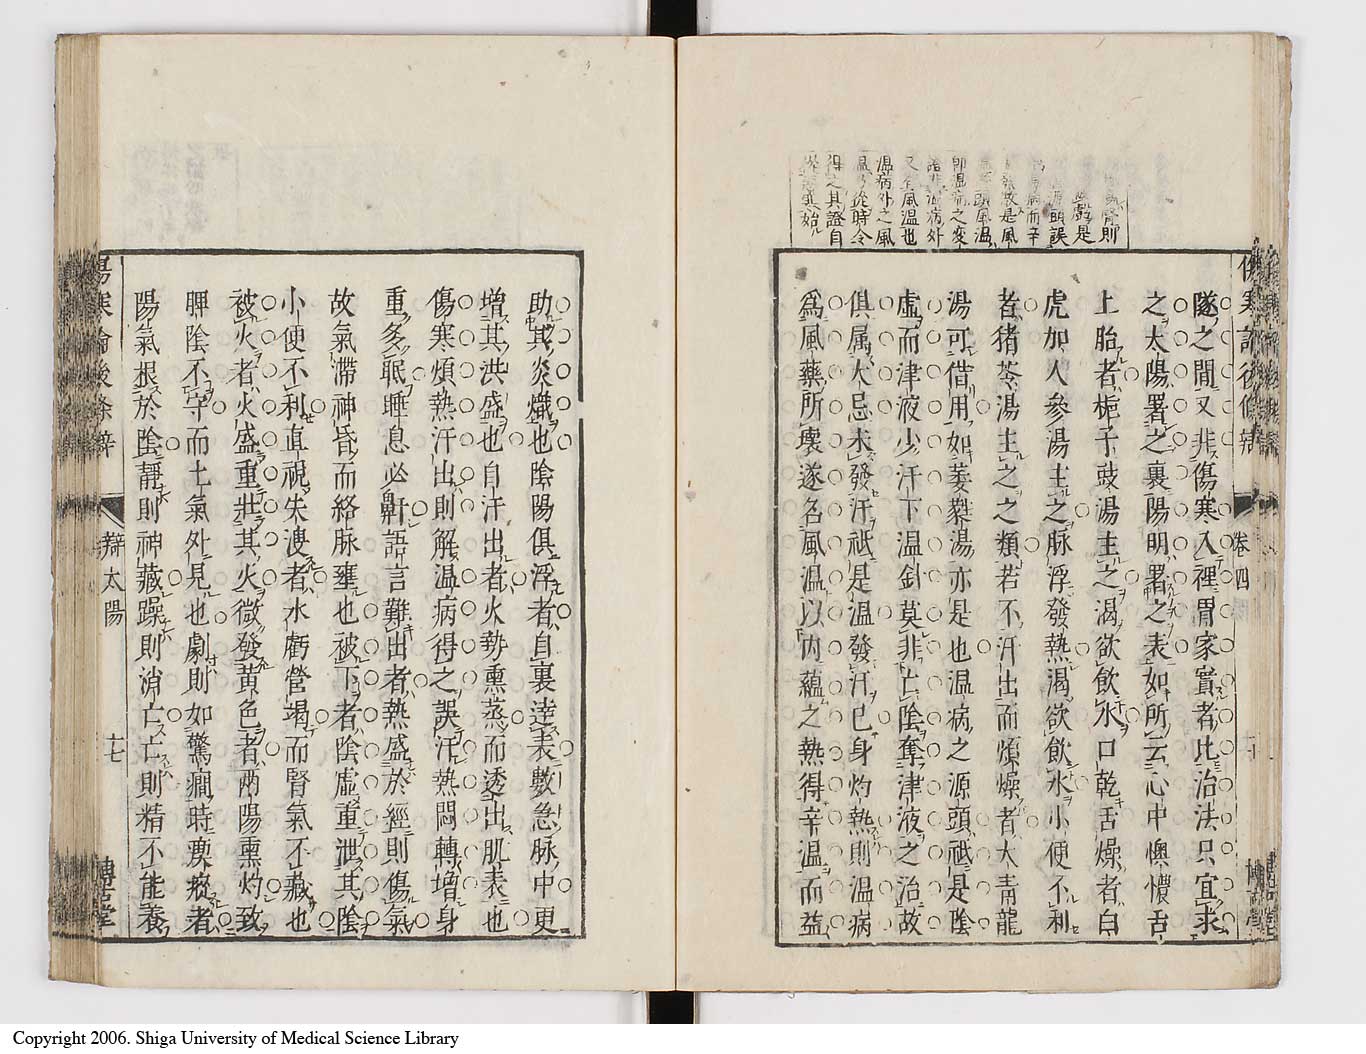 則
是
源頭誤
病而辛
散是風
頭風温
即温病之変
病外
又全風温也
温病外之風
温乃從時令
得之其證自
始
隧之間又非傷寒入裡胃家實者比治法只宜求
之太陽署之裏陽明署之表如所云心中懊憹舌
上胎者梔子豉湯主之渴欲飲水口乾舌燥者白
虎加人參湯主之脉浮發熱渴欲飲水小便不利
者猪苓湯主之之類若不汗出而煩燥者大青龍
湯可借用如葳蕤湯亦是也温病之源頭祗是陰
虛而津液少汗下温針莫非亡陰奪津液之治故
俱属大忌未發汗祗是温發汗已身灼熱則温病
為風藥所壊遂名風温以内蘊之熱得辛温而益
卷四
助其炎熾也陰陽俱浮者自裏達表數急脉中更
增其洪盛也自汗出者火勢熏蒸而透出肌表也
傷寒煩熱汗出則解温病得之誤汗熱悶轉增身
重多眠睡息必鼾語言難出者熱盛於經則傷氣
故氣滯神昏而絡脉壅也被下者陰虛重泄其陰
小便不利直視失溲者水虧營竭而腎氣不藏也
被火者火盛重壯其火微發黄色者兩陽熏灼致
脾陰不守而土氣外見也劇則如驚癇時瘈瘲者
陽氣根於陰靜則神藏躁則消亡亡則精不能養
傷寒論後條辨
辯太陽
十七
博古堂
Copyright 2006. Shiga University of Medical Science Library